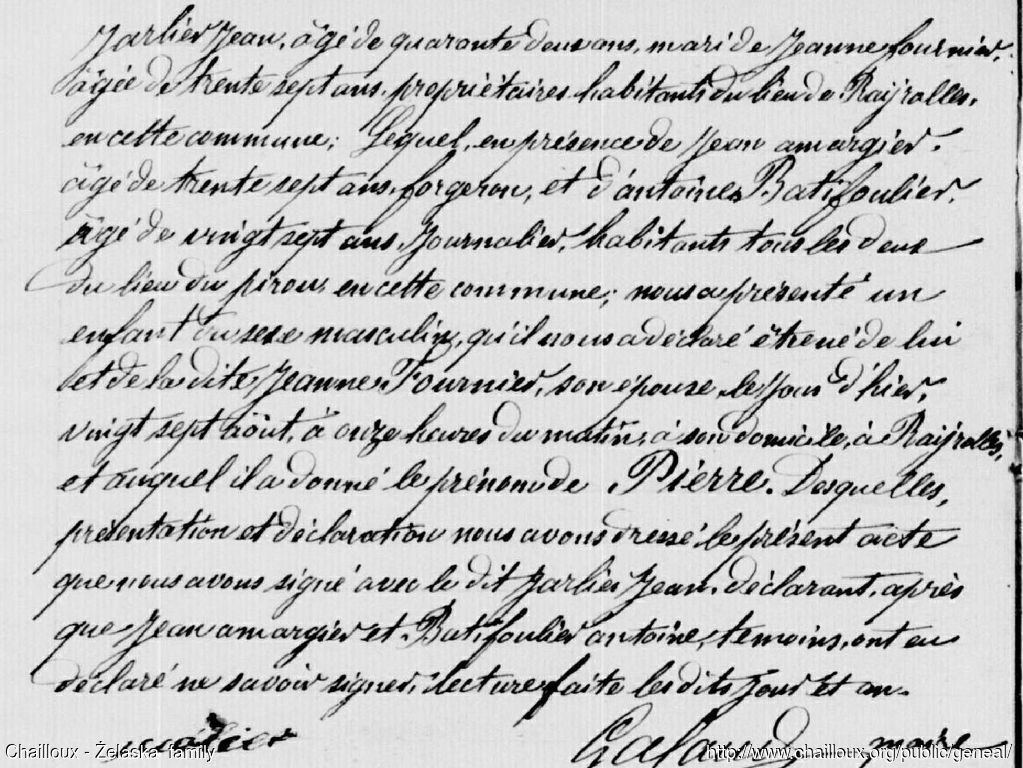 Jarlier Jean, âgé de quarante deux ans, mari de Jeanne fournier,
âgée de trente sept ans, propriétaires habitants du lieu de Rayrolles,
en cette commune; Lequel, en présence de Jean amargier,
âgé de trente sept ans, forgeron, et d'antoine Batifoulier,
âgé de vingt sept ans, Journalier, habitants tous les deux
du lieu du pirou, en cette commune; nous a présenté un
enfant du sexe masculin, qu'il nous a déclaré être né de lui
et de la dite Jeanne Fournier, son épouse, le Jour d'hier,
vingt sept août, à onze heures du matin, à son domicile, à Rayrolles,
et auquel il a donné le prénom de Pierre. Desquelles,
présentation et déclaration nous avons dressé le présent acte
que nous avons signé avec le dit Jarlier Jean, déclarant, après
que Jean amargier et Batifoulier antoine, témoins, ont eu
déclaré ne savoir signer, lecture faite les dits jour et an.
Galaud maire
Chailloux - Żelaska family
http://www.chailloux.org/public/geneal/